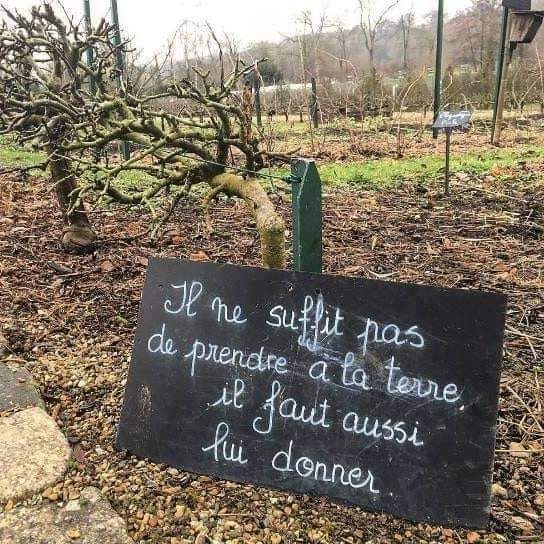 Il ne suffit pas
de prendre à la terre
il faut aussi
lui donner.